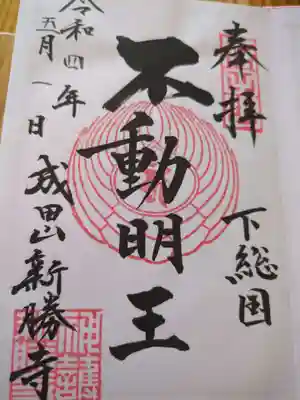 奉拝
下総国
不動明王
令和四年
五月一日
成田山新勝寺